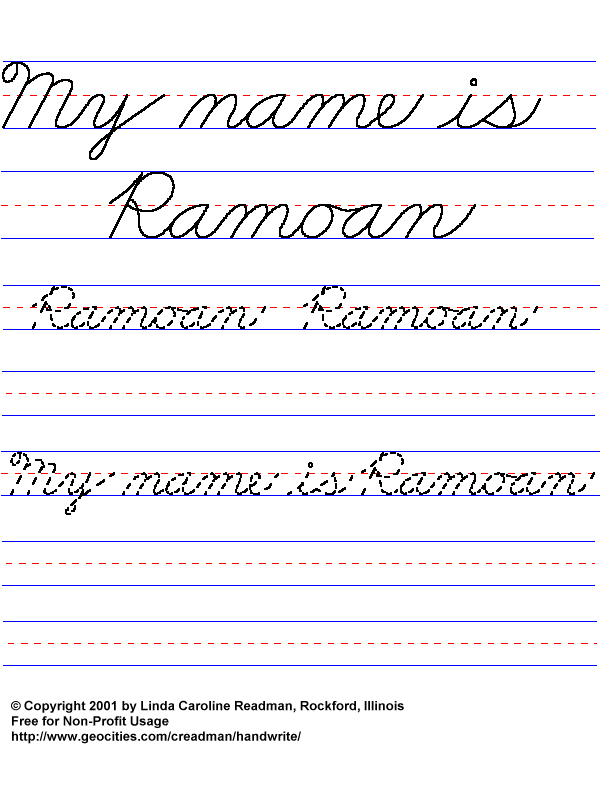 My name is
Ramoan
Ramoan Ramoan
My name is Ramoan
© Copyright 2001 by Linda Caroline Readman, Rockford, Illinois
Free for Non-Profit Usage
http://www.geocities.com/creadman/handwrite/